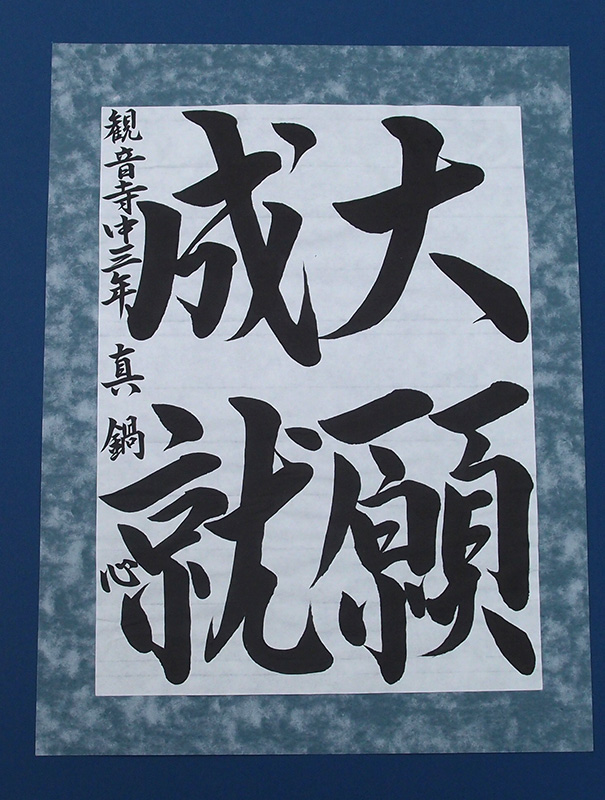 大願
成就
観音寺中三年 真鍋 心